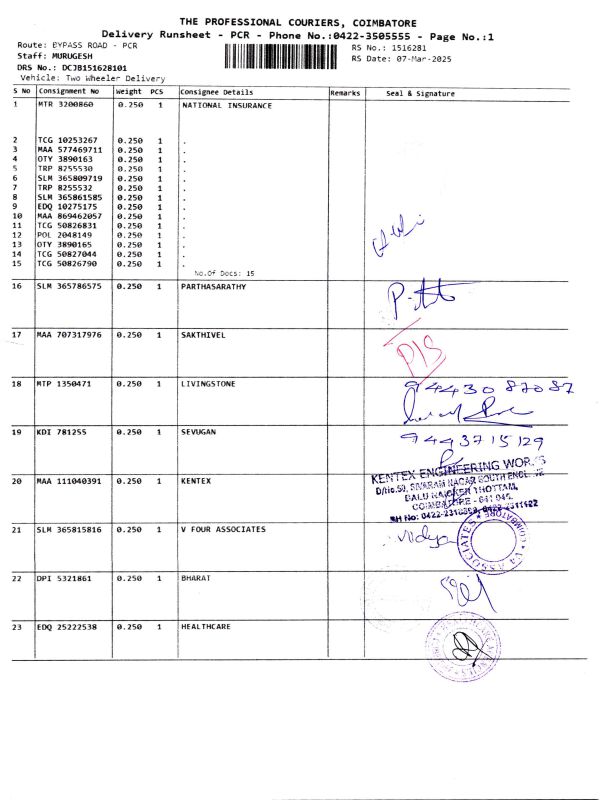 THE PROFESSIONAL COURIERS, COIMBATORE
Delivery Runsheet - PCR - Phone No.:0422-3505555 - Page No.:1
Route: BYPASS ROAD - PCR
RS No.: 1516281
Staff: MURUGESH
RS Date: 07-Mar-2025
DRS No.: DCJB151628101
Vehicle: Two Wheeler Delivery
S No Consignment No Weight PCS Consignee Details Remarks Seal & Signature
1 MTR 3200860 0.250 1 NATIONAL INSURANCE
2 TCG 10253267 0.250 1 .
3 MAA 577469711 0.250 1 .
4 OTY 3890163 0.250 1 .
5 TRP 8255530 0.250 1 .
6 SLM 365809719 0.250 1 .
7 TRP 8255532 0.250 1 .
8 SLM 365861585 0.250 1 .
9 EDQ 10275175 0.250 1 .
10 MAA 869462057 0.250 1 .
11 TCG 50826831 0.250 1 .
12 POL 2048149 0.250 1 .
13 OTY 3890165 0.250 1 .
14 TCG 50827044 0.250 1 .
15 TCG 50826790 0.250 1 .
No.Of Docs: 15
16 SLM 365786575 0.250 1 PARTHASARATHY
17 MAA 707317976 0.250 1 SAKTHIVEL
P/S
18 MTP 1350471 0.250 1 LIVINGSTONE
9443087087
19 KDI 781255 0.250 1 SEVUGAN
9443715129
20 MAA 111040391 0.250 1 KENTEX
KENTEX ENGINEERING WORKS
D/No.59, SIVARAM NAGAR SOUTH
BALU NAICKER THOTTAM,
COIMBATORE - 641 045.
21 SLM 365815816 0.250 1 V FOUR ASSOCIATES
Vidya
V4 ASSOCIATES COIMBATORE
22 DPI 5321861 0.250 1 BHARAT
23 EDQ 25222538 0.250 1 HEALTHCARE